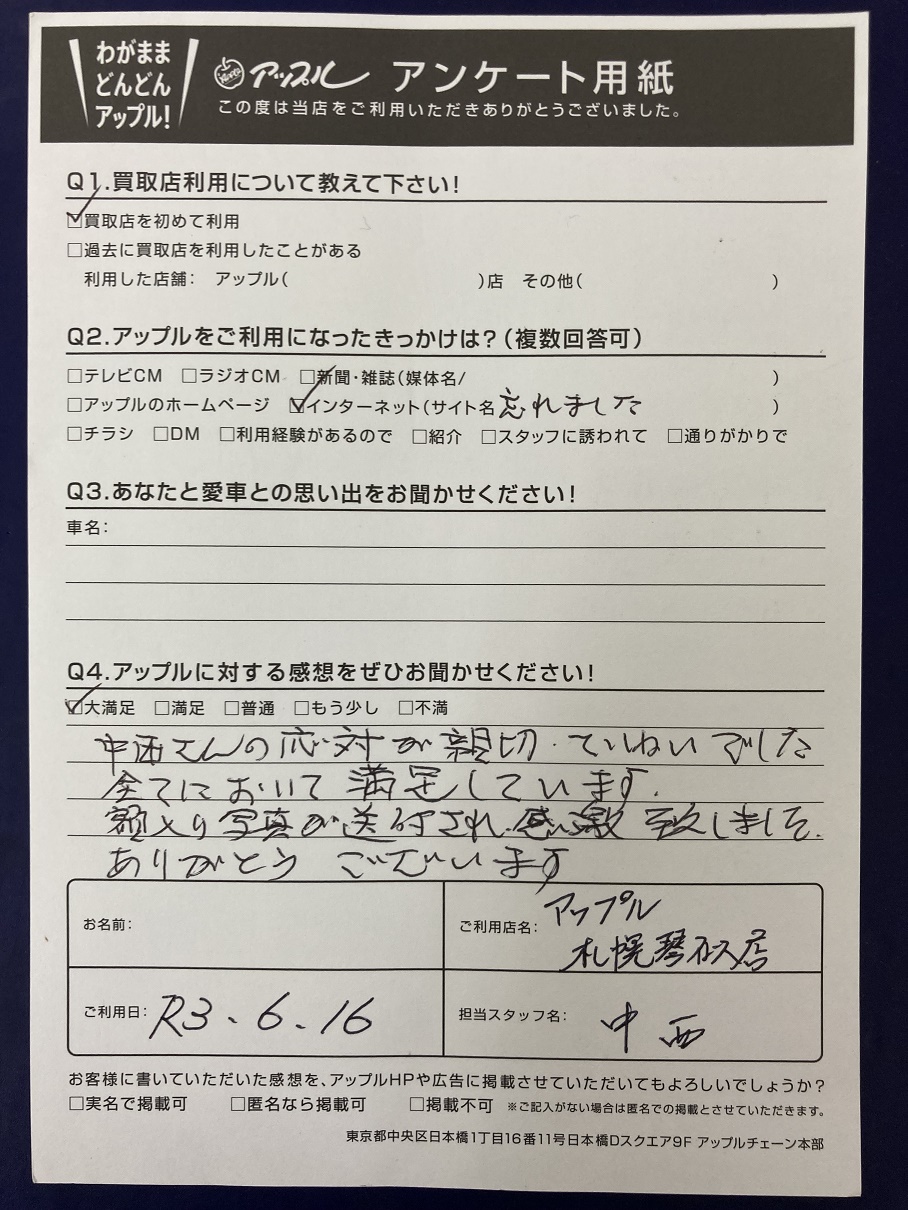 わがまま
どんどん
アップル!
アップル アンケート用紙
この度は当店をご利用いただきありがとうございました。
Q1.買取店利用について教えて下さい!
☑買取店を初めて利用
□過去に買取店を利用したことがある
利用した店舗: アップル( )店 その他( )
Q2.アップルをご利用になったきっかけは?(複数回答可)
□テレビCM □ラジオCM □新聞・雑誌(媒体名/ )
□アップルのホームページ ☑インターネット(サイト名 忘れました )
□チラシ □DM □利用経験があるので □紹介 □スタッフに誘われて □通りがかりで
Q3.あなたと愛車との思い出をお聞かせください!
車名:
Q4.アップルに対する感想をぜひお聞かせください!
☑大満足 □満足 □普通 □もう少し □不満
中西さんの応対が親切・ていねいでした
全てにおいて満足しています.
額入り写真が送付され感激致しました.
ありがとうございます
お名前:
ご利用店名: アップル
札幌琴似店
ご利用日: R3.6.16
担当スタッフ名: 中西
お客様に書いていただいた感想を、アップルHPや広告に掲載させていただいてもよろしいでしょうか?
□実名で掲載可 □匿名なら掲載可 □掲載不可 ※ご記入がない場合は匿名での掲載とさせていただきます。
東京都中央区日本橋1丁目16番11号日本橋Dスクエア9F アップルチェーン本部